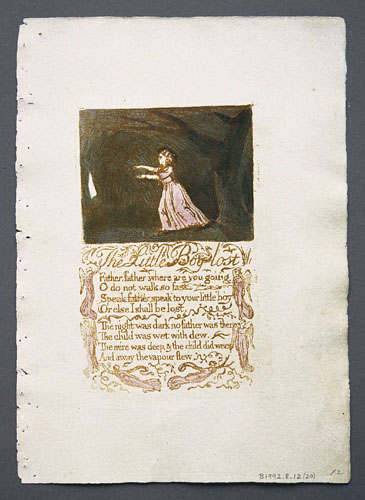 The Little Boy lost
Father, father, where are you going
O do not walk so fast.
Speak father, speak to your little boy
Or else I shall be lost,
The night was dark no father was there
The child was wet with dew.
The mire was deep, & the child did weep
And away the vapour flew.
B1992.8.12(20)
12